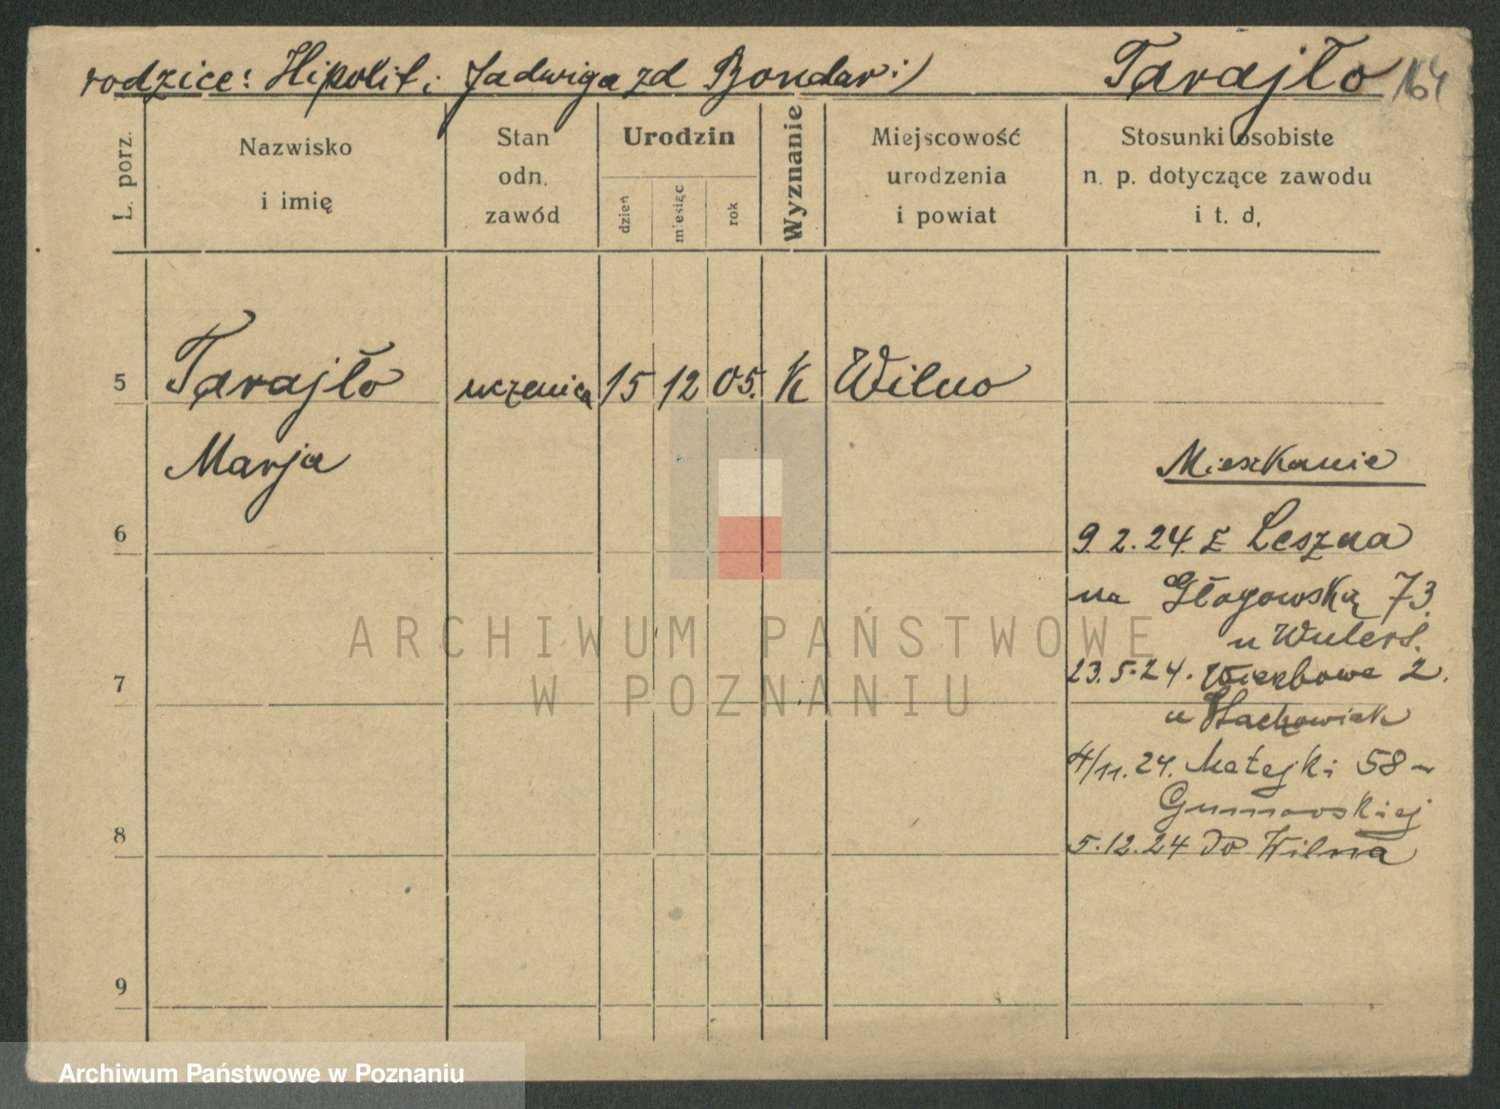 rodzice: Hipolit i Jadwiga zd Bondar :/ Tarajło 164
L. porz.
Nazwisko
i imię
Stan
odn.
zawód
Urodzin
dzień
miesiąc
rok
Wyznanie
Miejscowość
urodzenia
i powiat
Stosunki osobiste
n. p. dotyczące zawodu
i t. d.
5 Tarajło uczenica 15 12 05. K Wilno
Marja
Mieszkanie
6
9.2.24. z Leszna
na Głogowską 73.
u
ARCHIWUM PAŃSTWOWE
W POZNANIU
7
23.5.24. Wierzbowe 2.
u Stachowiak
4/11.24. Matejki 58 -
8
5.12.24 do Wilna
9
Archiwum Państwowe w Poznaniu